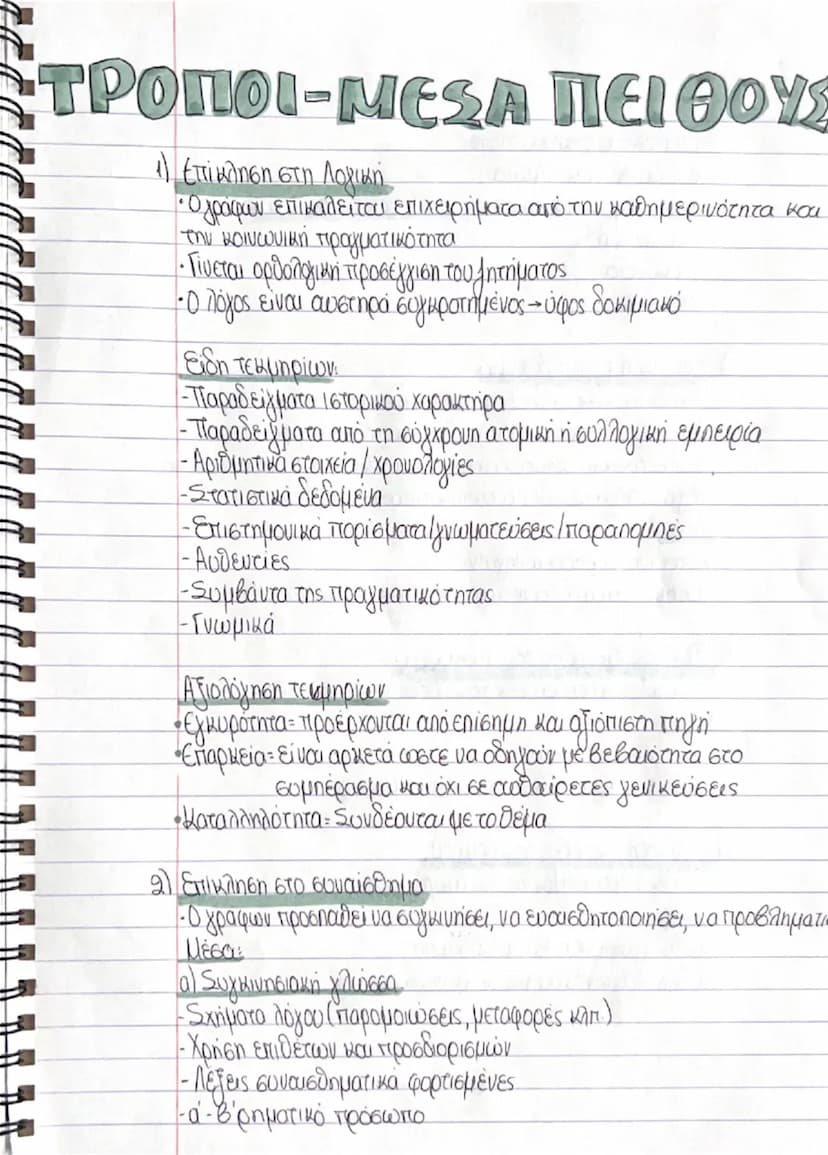 ΤΡΟΠΟΙ-ΜΕΣΑ ΠΕΙΘΟΥΣ
1) Επίκληση στη Λογική
·Ο γράφων επικαλείται επιχειρήματα από την καθημερινότητα και
την κοινωνική πραγματικότητα
·Γίνεται ορθολογική προσέγγιση του ζητήματος
·Ο λόγος είναι αυστηρά συγκροτημένος→ύφος δοκιμιακό
Είδη τεκμηρίων:
-Παραδείγματα ιστορικού χαρακτήρα
-Παραδείγματα από τη σύγχρονη ατομική ή συλλογική εμπειρία
-Αριθμητικά στοιχεία/χρονολογίες
-Στατιστικά δεδομένα
-Επιστημονικά πορίσματα/γνωματεύσεις/παραπομπές
-Αυθεντίες
-Συμβάντα της πραγματικότητας
-Γνωμικά
Αξιολόγηση τεκμηρίων
•Εγκυρότητα= προέρχονται από επίσημη και αξιόπιστη πηγή
•Επάρκεια= είναι αρκετά ώστε να οδηγούν με βεβαιότητα στο
συμπέρασμα και όχι σε αυθαίρετες γενικεύσεις
•Καταλληλότητα= Συνδέονται με το θέμα
2) Επίκληση στο συναίσθημα
·Ο γράφων προσπαθεί να συγκινήσει, να ευαισθητοποιήσει, να προβληματι
Μέσα:
α) Συγκινησιακή γλώσσα
-Σχήματα λόγου (παρομοιώσεις, μεταφορές κλπ.)
-Χρήση επιθέτων και προσδιορισμών
-Λέξεις συναισθηματικά φορτισμένες
-α'-β' ρηματικό πρόσωπο